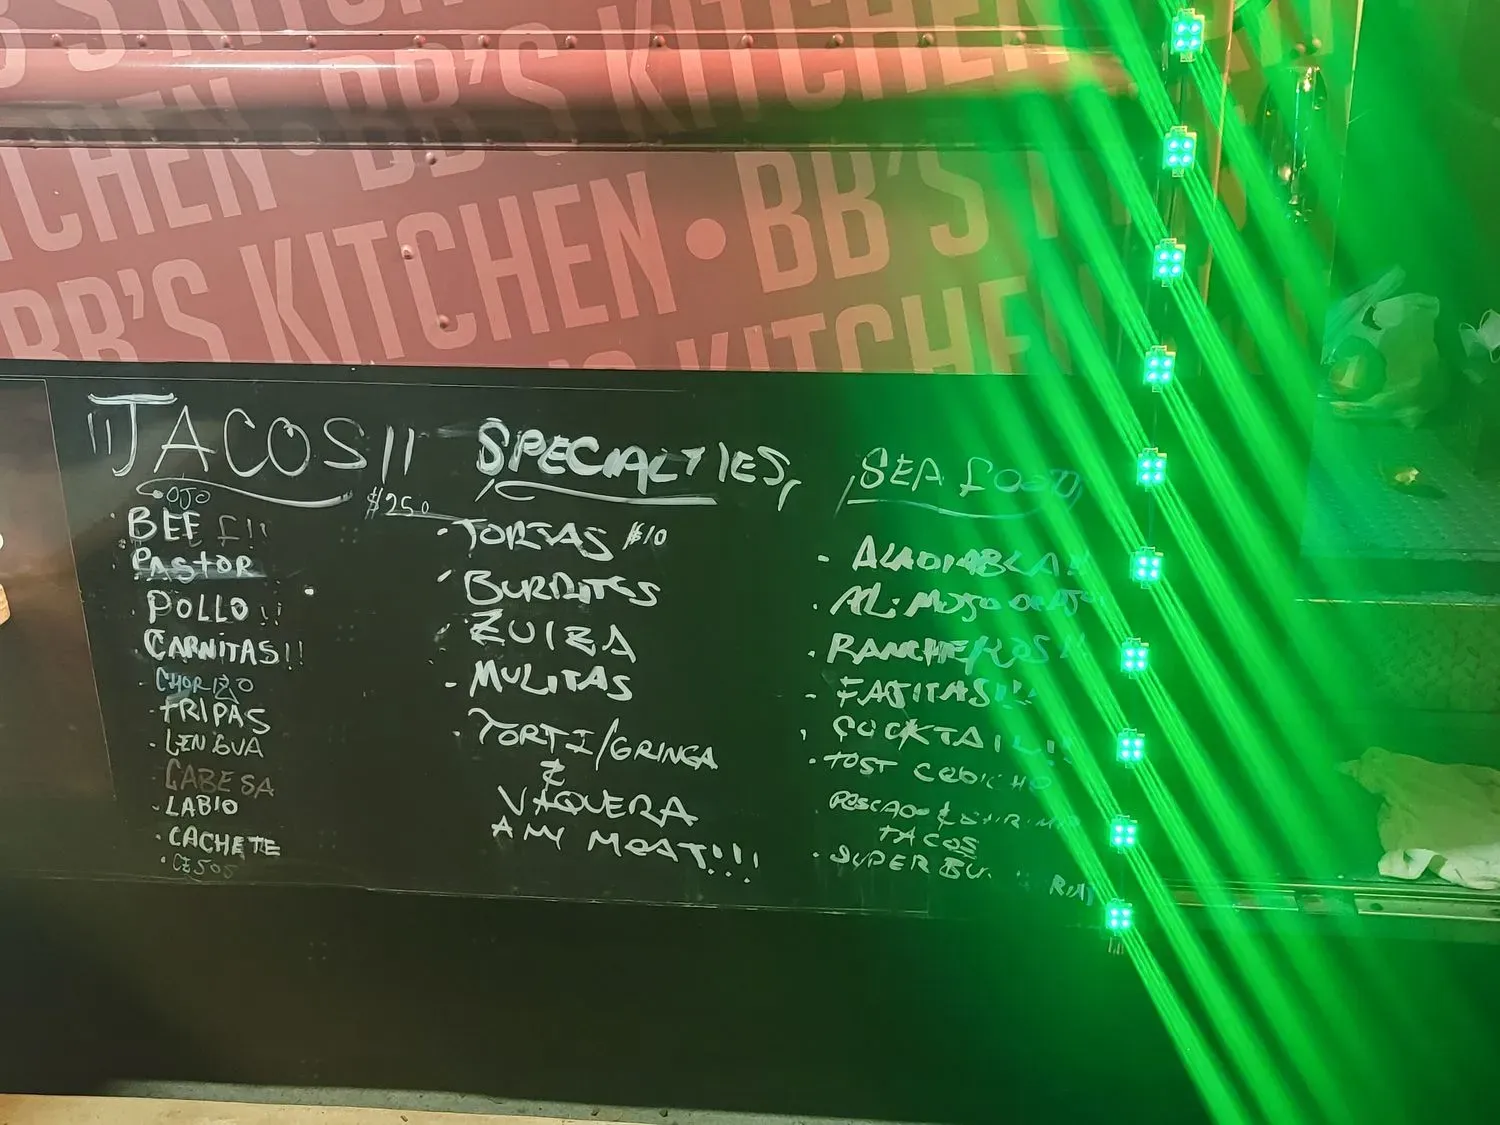 BB'S KITCHEN
BB'S KITCHEN • BB'S KITCHEN
CHEN • BB'S KITCHEN
BB'S KITCHEN • BB'S
KITCHEN
"TACOS"
OJO
$250
BEEF!!
PASTOR
POLLO!!
CARNITAS!!
CHORIZO
TRIPAS
LENGUA
CABESA
LABIO
CACHETE
CESOS
SPECIALTIES,
TORTAS $10
BURRITOS
MULITAS
TORTI/GRINGA
&
VAQUERA
ANY MEAT!!!
SEA FOOD
ALADIABLA!!
AL MOJO DE AJO
RANCHEROS!!
FAJITAS!!!
COCKTAIL!!
TACOS
SUPER BU